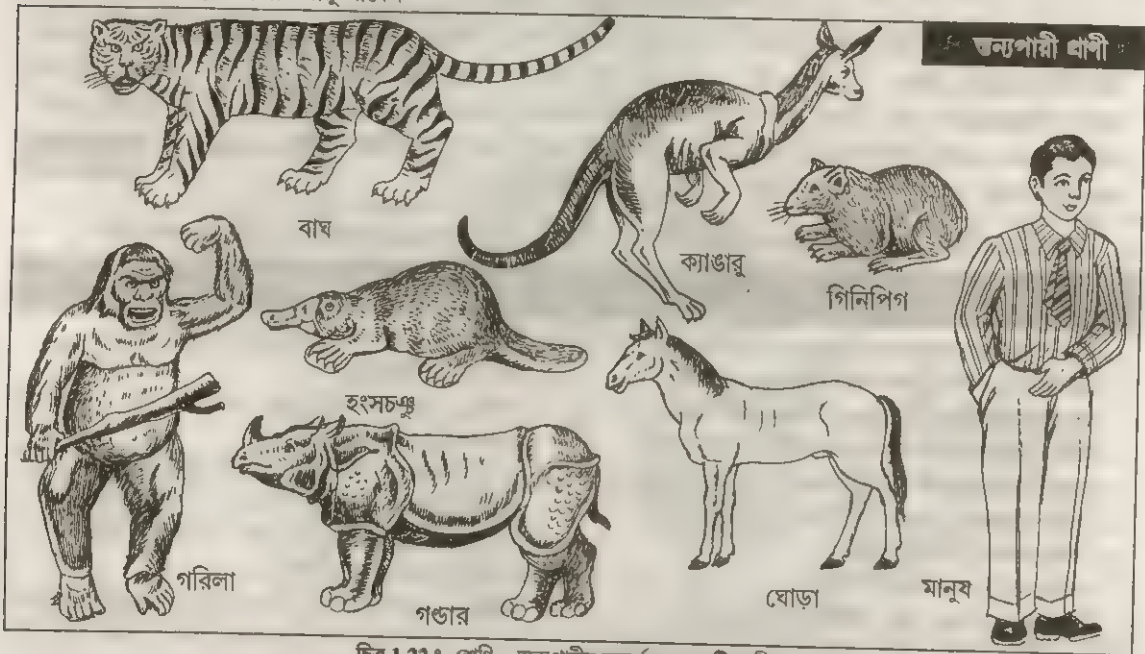 স্তন্যপায়ী প্রাণী
বাঘ
ক্যাঙারু
গিনিপিগ
হংসচঞ্চু
গরিলা
গণ্ডার
ঘোড়া
মানুষ